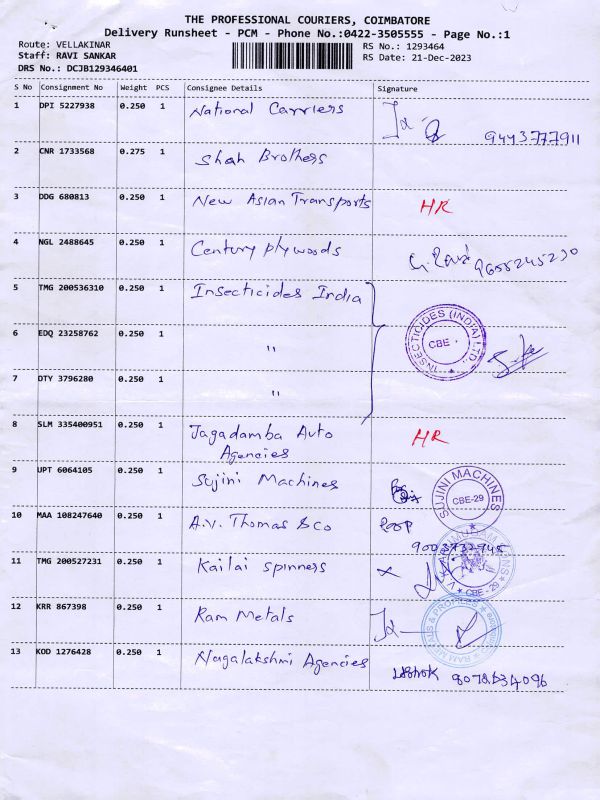 THE PROFESSIONAL COURIERS, COIMBATORE
Delivery Runsheet - PCM - Phone No.:0422-3505555 - Page No.:1
Route: VELLAKINAR
RS No.: 1293464
Staff: RAVI SANKAR
RS Date: 21-Dec-2023
DRS No.: DCJB129346401
S No Consignment No Weight PCS Consignee Details Signature
1 DPI 5227938 0.250 1 National Carriers
9443777911
2 CNR 1733568 0.275 1 Shah Brothers
3 DDG 680813 0.250 1 New Asian Transports HR
4 NGL 2488645 0.250 1 Century plywoods
5 TMG 200536310 0.250 1 Insecticides India
INSECTICIDES (INDIA) LTD. CBE
6 EDQ 23258762 0.250 1 "
7 DTY 3796280 0.250 1 "
8 SLM 335400951 0.250 1 Jagadamba Auto HR
Agencies
9 UPT 6064105 0.250 1 Sujini Machines
SUJINI MACHINES CBE-29
10 MAA 108247640 0.250 1 A.V. Thomas & co
11 TMG 200527231 0.250 1 Kailai spinners
CBE - 29
12 KRR 867398 0.250 1 Ram Metals
RAM METALS & PROFILES
13 KOD 1276428 0.250 1 Nagalakshmi Agencies